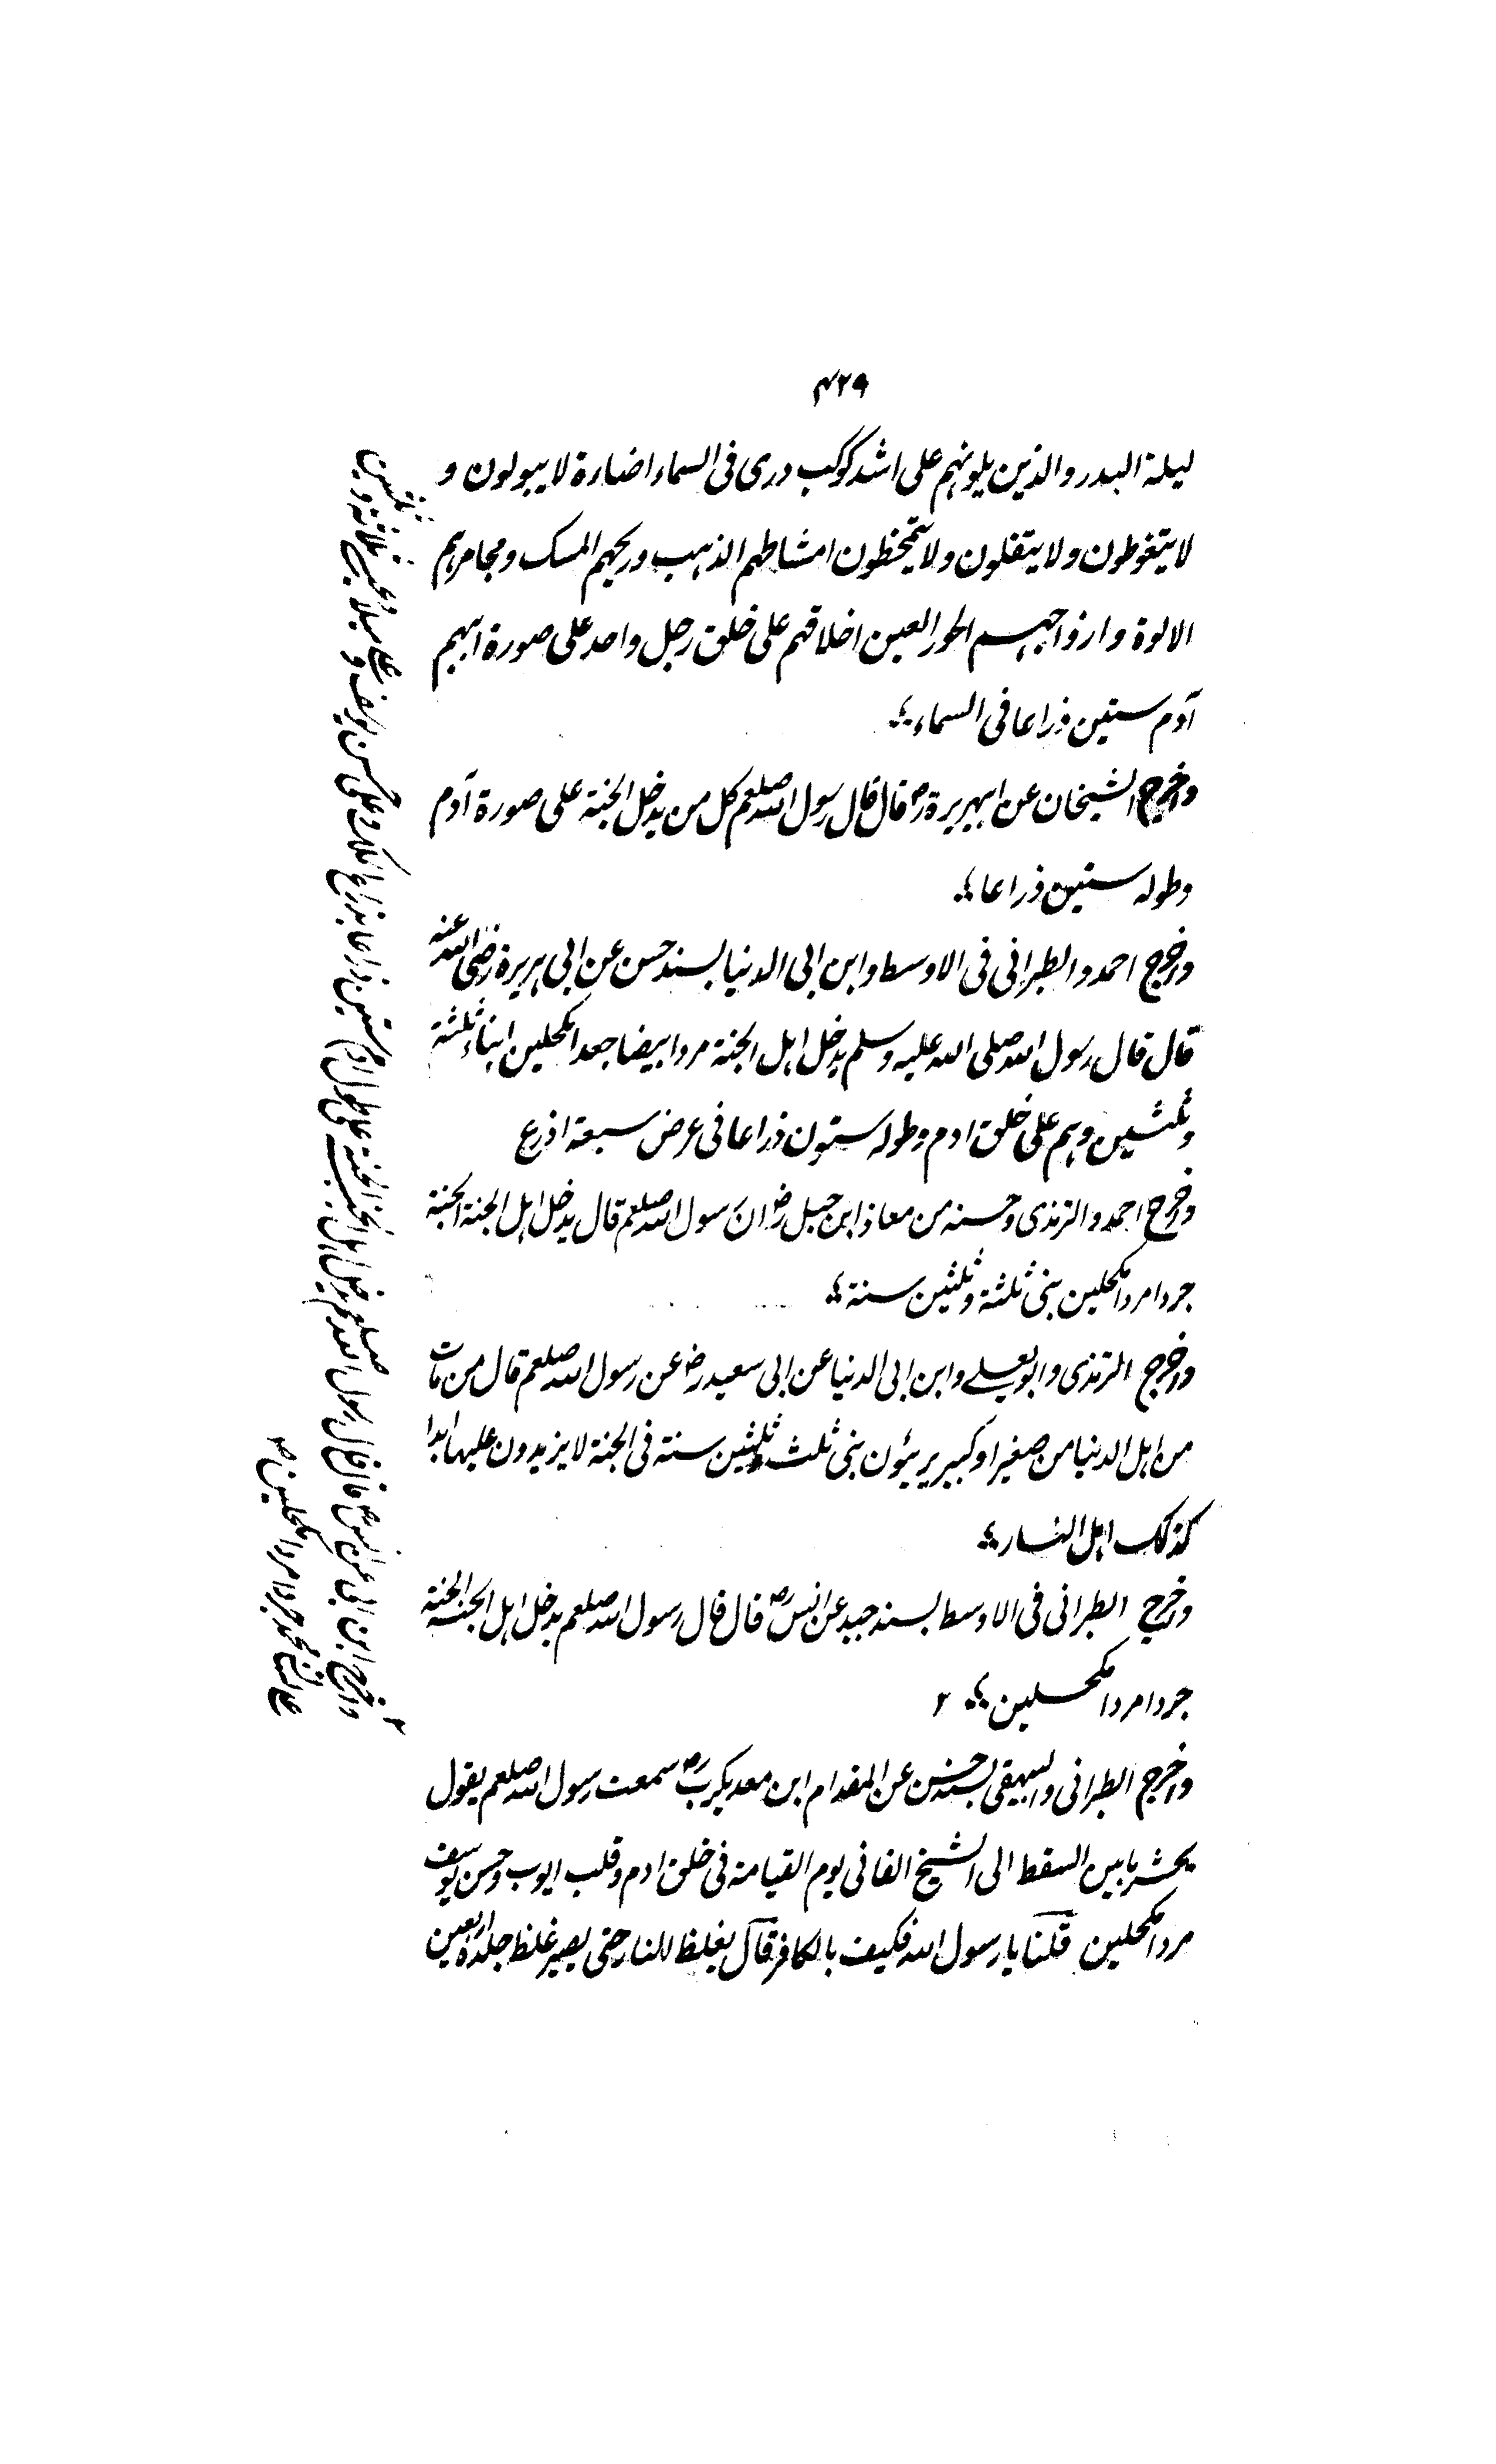 ۴۲۹
ليلة البدر والذين يلونهم على اشد كوكب درى فى السماء اضاءة لا يبولون و
لا يتغوطون ولا يتفلون ولا يتمخطون امشاطهم الذهب وريحهم المسك ومجامرهم
الالوة وازواجهم الحور العين اخلاقهم على خلق رجل واحد على صورة ابيهم
آدم ستين ذراعا فى السماء
واخرج الشيخان عن ابيهريرة رض قال قال رسول الله صلعم كل من يدخل الجنة على صورة آدم
وطوله ستين ذراعا
واخرج احمد والطبرانى فى الاوسط وابن ابى الدنيا بسند حسن عن ابى هريرة رضى الله عنه
قال قال رسول الله صلى الله عليه وسلم يدخل اهل الجنة مردا بيضا جعدا مكحلين ابناء ثلثة
وثلثين وهم على خلق ادم وطوله ستون ذراعا فى عرض سبعة اذرع
واخرج احمد والترمذى وحسنه من معاذ ابن جبل رض ان رسول الله صلعم قال يدخل اهل الجنة الجنة
جردا مردا مكحلين بنى ثلثة وثلثين سنة
واخرج الترمذى وابو يعلى وابن ابى الدنيا عن ابى سعيد رض عن رسول الله صلعم قال من مات
من اهل الدنيا من صغير او كبير يرئون بنى ثلث وثلثين سنة فى الجنة لا يزيدون عليها ابدا
كذلك اهل النار
واخرج الطبرانى فى الاوسط بسند جيد عن انس رض قال قال رسول الله صلعم يدخل اهل الجنة الجنة
جردا مردا مكحلين ۲
واخرج الطبرانى والبيهقى بسند حسن عن المقدام ابن معديكرب رض سمعت رسول الله صلعم يقول
يحشر ما بين السقط الى الشيخ الفانى يوم القيامة فى خلق ادم وقلب ايوب وحسن يوسف
مردا مكحلين قلنا يا رسول الله فكيف بالكافر قال يغلظ للنار حتى يصير غلظ جلده اربعين
۲ واخرج ابن ابى عن انس قال قال رسول الله صلعم يدخل اهل الجنة الجنة على طول ادم ستين ذراعا بذراع الملك وعلى حسن يوسف وعلى ميلاد عيسى ثلاثة وثلثين
على لسان محمد جردا مردا مكحلين